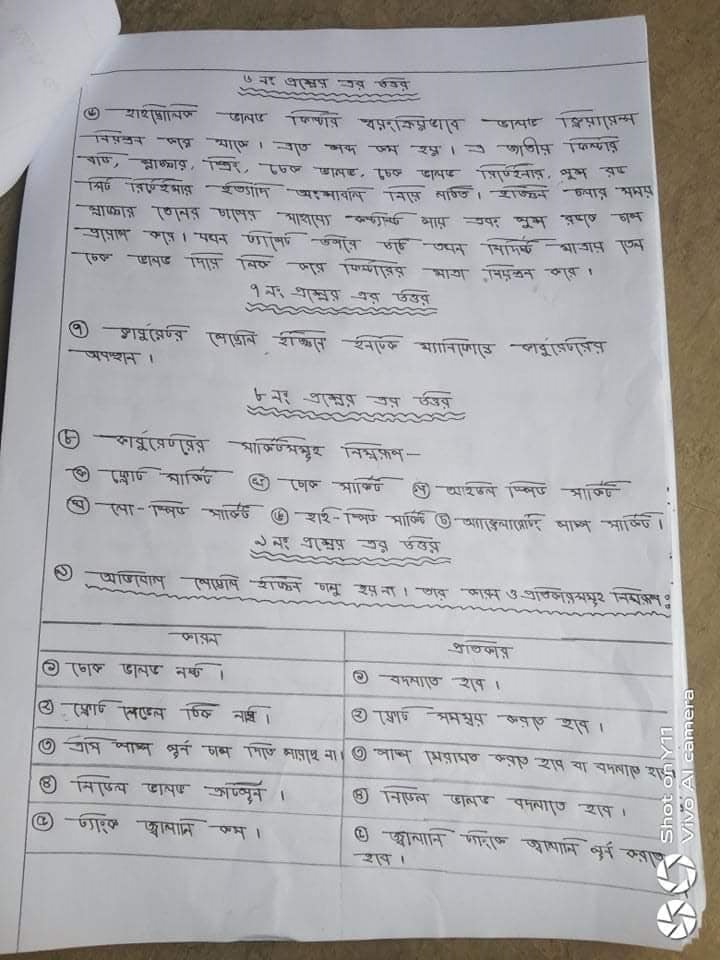 ৬ নং প্রশ্নের এর উত্তর
৬ হাইড্রোলিক ভালভ লিফটার স্বয়ংক্রিয়ভাবে ভালভ ক্লিয়ারেন্স
নিয়ন্ত্রন করে থাকে। এতে শব্দ কম হয়। এ জাতীয় লিফটার
বডি, প্লাঞ্জার, স্প্রিং, চেক ভালভ, চেক ভালভ রিটেইনার, পুশ রড
সিট রিটেইনার ইত্যাদি অংশাবলি নিয়ে গঠিত। ইঞ্জিন চলার সময়
প্লাঞ্জার তেলের চাপের সাহায্যে কন্ট্যাক্ট পায় এবং পুশ রডকে চাপ
প্রয়োগ করে। যখন ট্যাপেট উপরে উঠে তখন নির্দিষ্ট মাত্রায় তেল
চেক ভালভ দিয়ে লিক করে লিফটারের মাত্রা নিয়ন্ত্রন করে।
৭ নং প্রশ্নের এর উত্তর
৭ কার্বুরেটর পেট্রোল ইঞ্জিনে ইনটেক ম্যানিফোল্ডে কার্বুরেটরের
অবস্থান।
৮ নং প্রশ্নের এর উত্তর
৮ কার্বুরেটরের সার্কিটসমূহ নিম্নরূপ—
ক ফ্লোট সার্কিট খ চোক সার্কিট গ আইডল স্পিড সার্কিট
ঘ লো-স্পিড সার্কিট ঙ হাই-স্পিড সার্কিট চ অ্যাক্সেলারেটিং পাম্প সার্কিট।
৯ নং প্রশ্নের এর উত্তর
৯ পেট্রোল ইঞ্জিন চালু হয় না। তার কারন ও প্রতিকারসমূহ নিম্নরূপঃ
কারন
প্রতিকার
১ চোক ভালভ নষ্ট।
১ বদলাতে হবে।
২ ফ্লোট লেভেল ঠিক নাই।
২ ফ্লোট সমন্বয় করতে হবে।
৩ এসি পাম্প পূর্ন চাপ দিতে পারছে না।
৩ পাম্প মেরামত করতে হবে বা বদলাতে হবে
৪ নিডেল ভালভ ত্রুটিপূর্ন।
৪ নিডেল ভালভ বদলাতে হবে।
৫ ট্যাংকে জ্বালানি কম।
৫ জ্বালানি ট্যাংকে জ্বালানি পূর্ন করতে
হবে।
Shot on Y11
Vivo AI camera